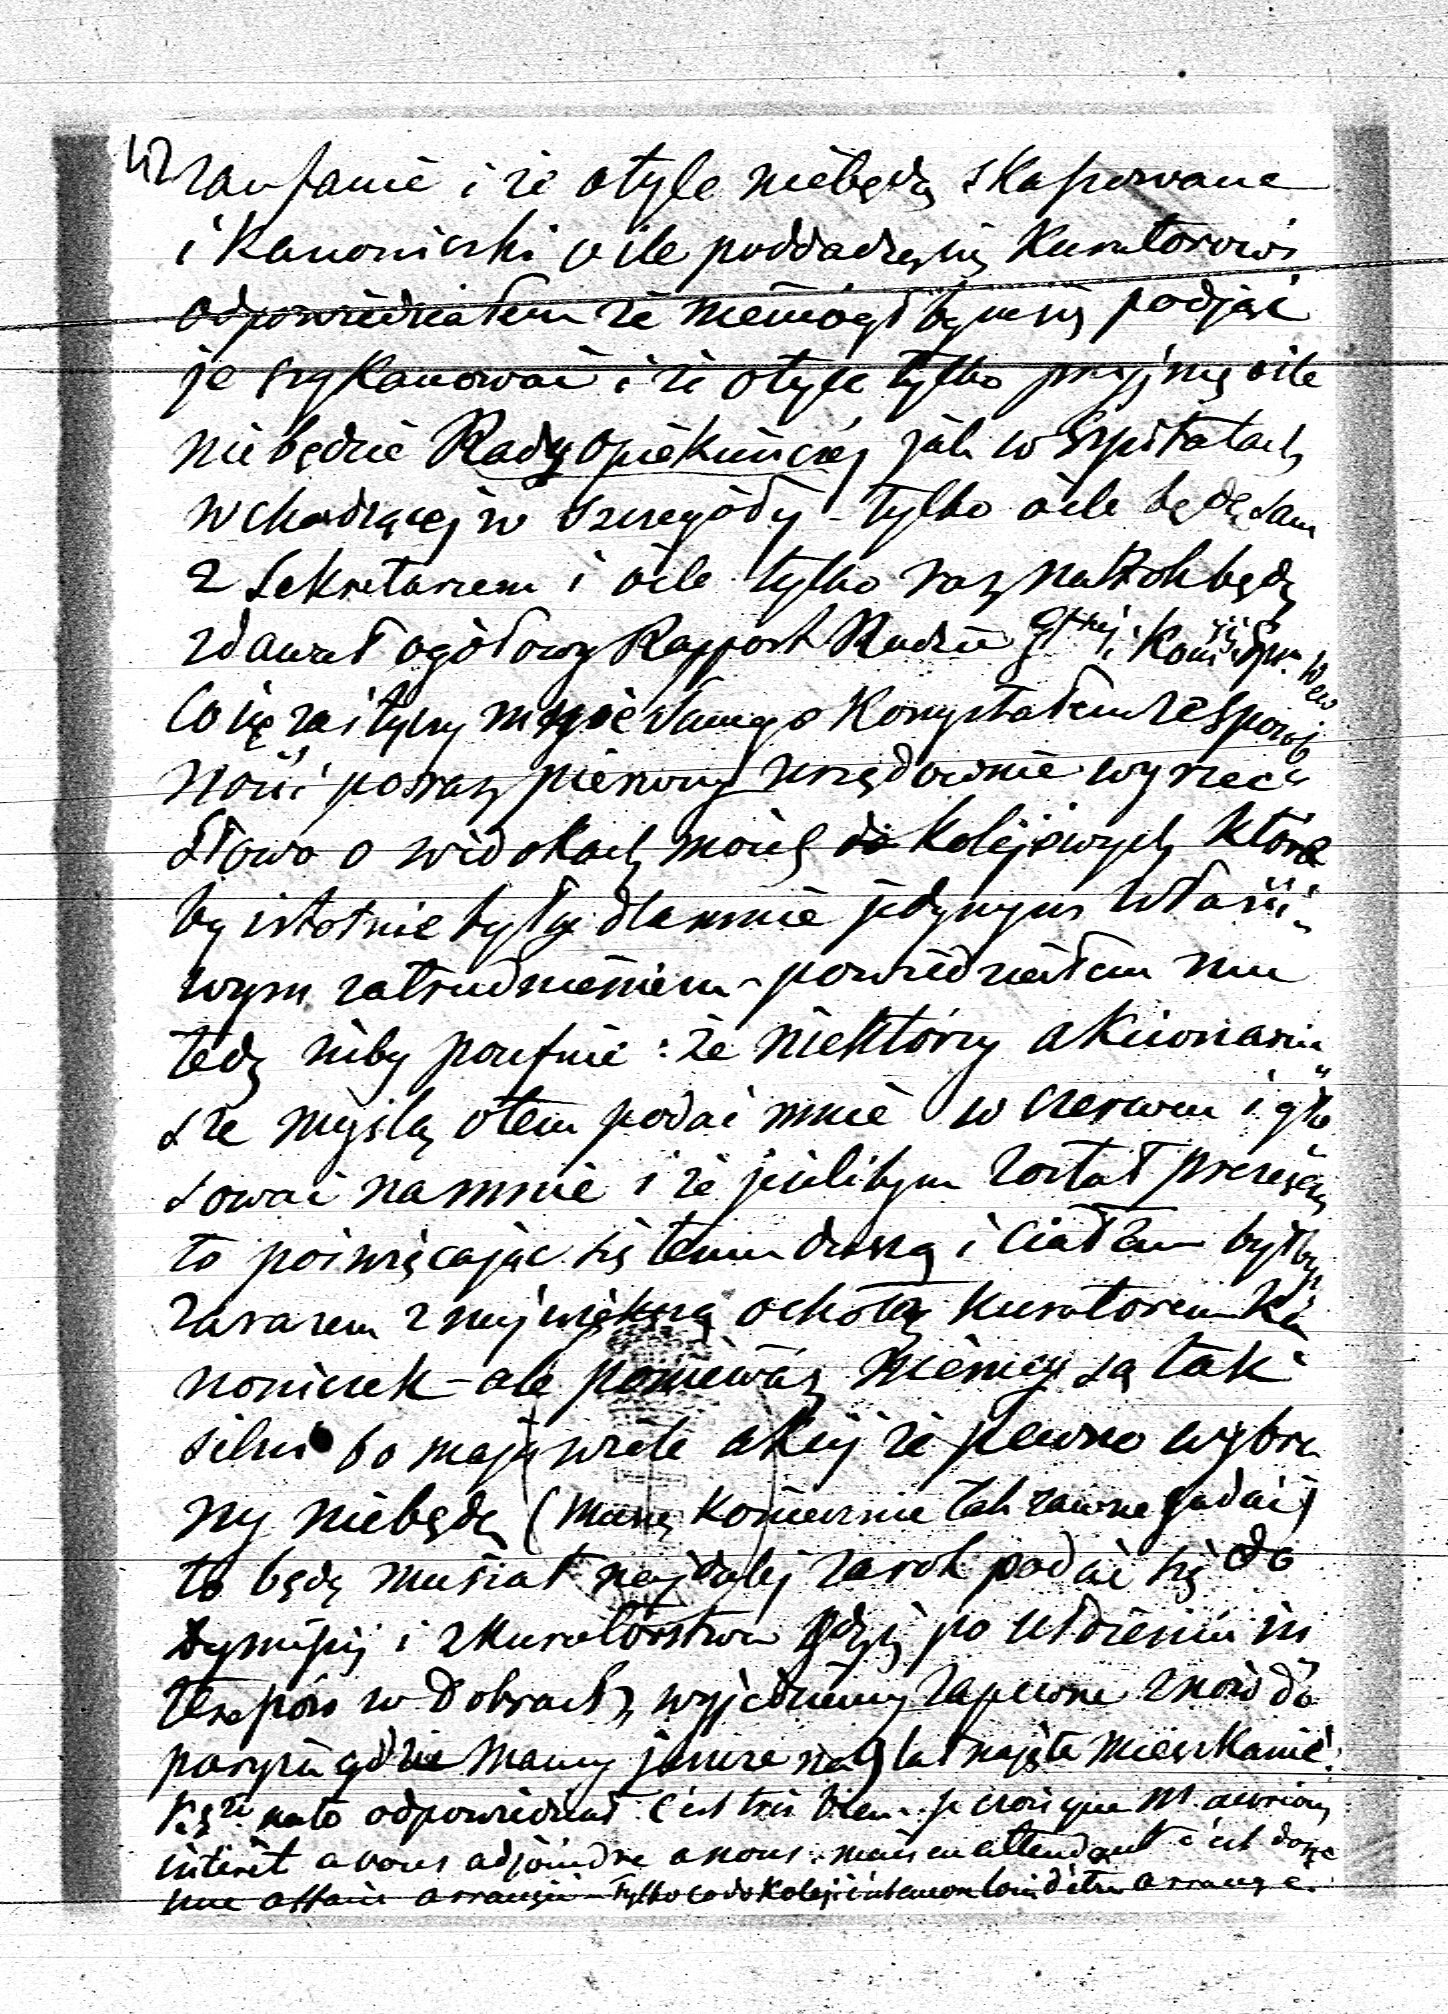 42 zaufanie i że otyle niebędą skasowane
i Kanoniczki o ile poddadzą się Kuratorowi
odpowiedziałem że niemógłbym się podjąć
je szykanować i że otyle tylko przyjmę oile
nie będzie Rady Opiekuńczéj jak w Szpitalach
wchodzącej w szczegóły - tylko oile będę sam
z Sekretarzem i oile tylko raz na Rok będę
zdawał ogółowy Rapport Radzie Gł i Komisji Spr. Wew
Co się zaś tyczy mnie samego Korzystałem ze sposob
ności poraz pierwszy urzędownie wyrzec
słowo o widokach moich do Kolejowych które
by istotnie były dla mnie jedynym właści-
wym zatrudnieniem - powiedziałem mu
tedy niby poufnie: że niektórzy akcionariu
sze myślą otem podać mnie w czerwcu i gło
sować na mnie i że jeślibym został prezesem
to poświęcając się temu duszą i ciałem byłbym
zarazem z największą ochotą Kuratorem Ka
noniczek - ale ponieważ Niemcy są tak
silni bo mają wiele akcij że pewno wybra
ny niebędę (muszę koniecznie tak zawsze gadać)
to będę musiał najdalej za rok podać się do
Dymisji i z Kuratorstwa gdyż po ułożeniu in
teressów w Dobrach wyjedziemy zapewne znów do
Paryża gdzie mamy jeszcze na lat najęte mieszkanie.
na to odpowiedział c'est très bien je crois que nous aurions
intérêt a vous adjoindre a nous - mais en attendant c'est donc
une affaire arrangée - tylko co do Kolei c'est encore loin d'être arrangé.